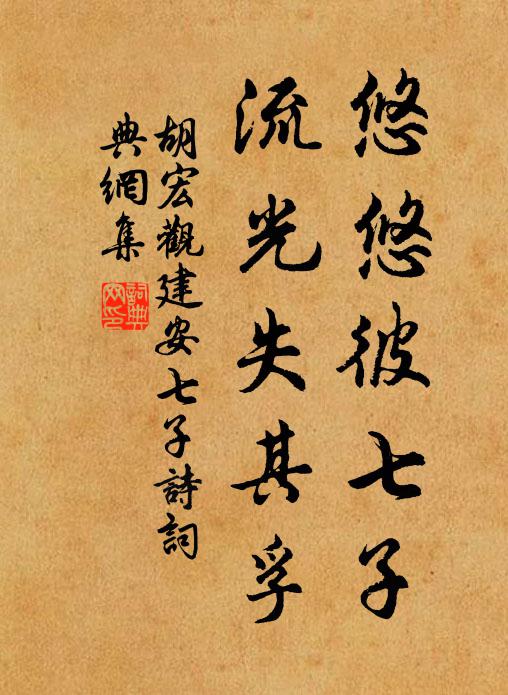 悠悠彼七子
流光失其孚
胡宏觀建安七子詩詞
典網集
詞典
网印